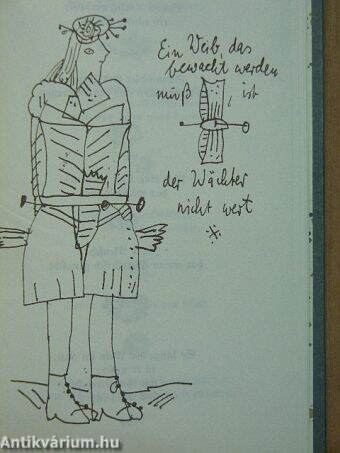 Ein Weib, das
bewacht werden
muß, ist
der Wächter
nicht wert
Antikvárium.hu